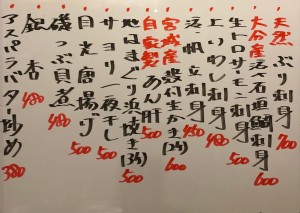 天然ぶり刺身 700
大分産活〆石垣鯛刺身 600
生トロサーモン刺身 500
上いわし刺身 480
活・帆立刺身 450
宮城産殻付生かき(3ケ) 600
自家製あん肝 500
地はまぐり浜焼き(3ケ) 500
サヨリ一夜干し 500
目光唐揚げ 500
磯つぶ貝煮 480
銀杏 480
アスパラバター炒め 380